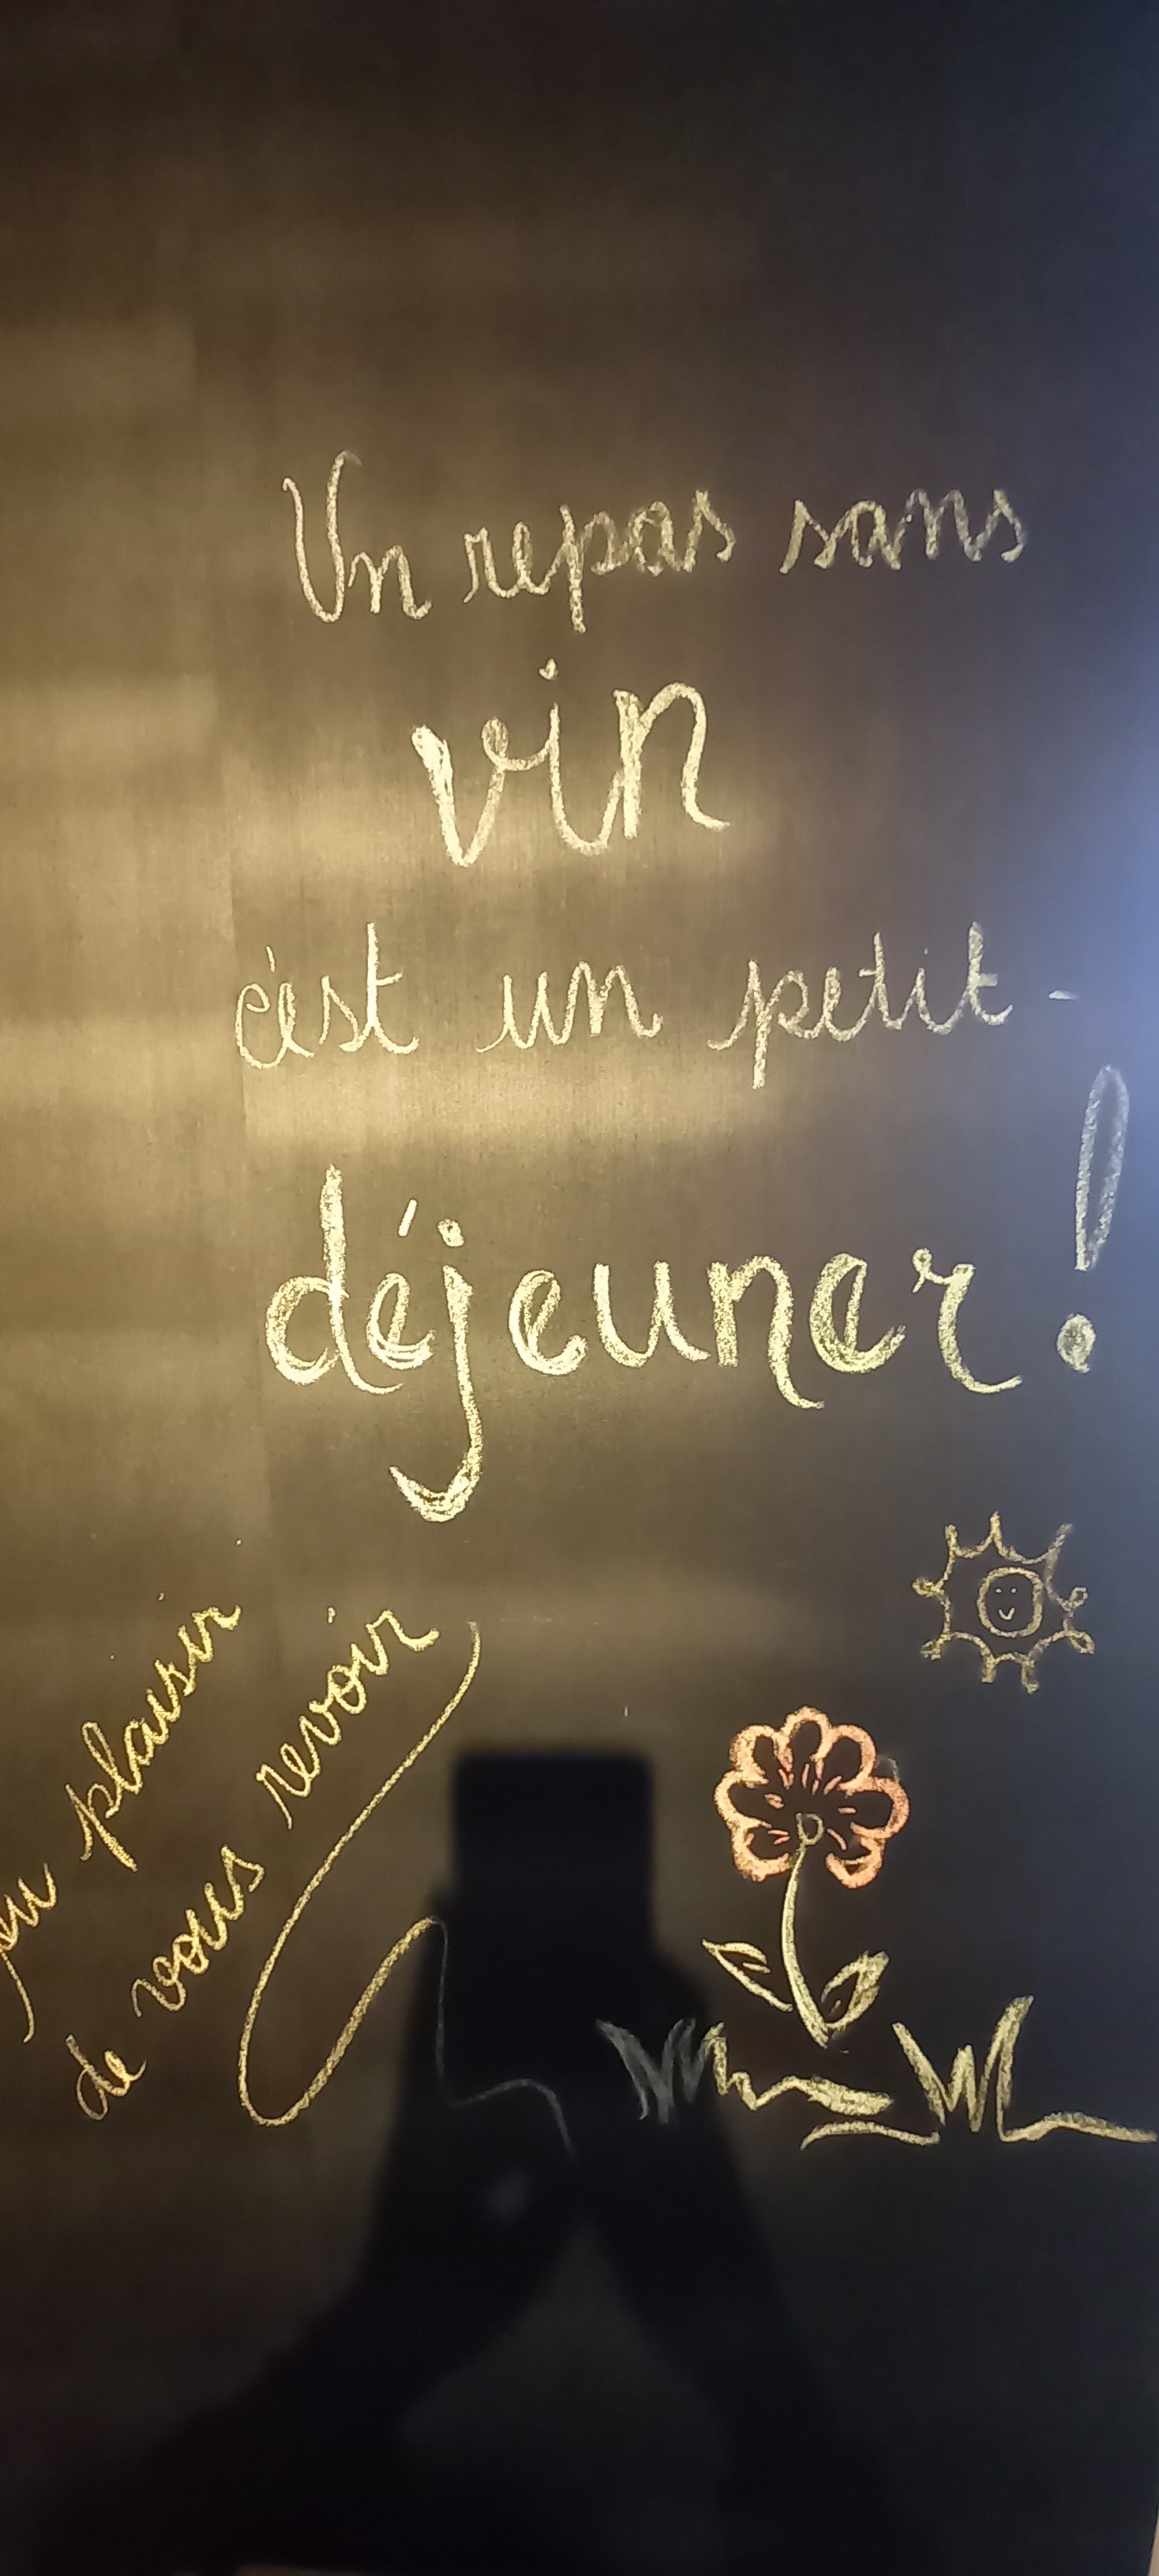 Un repas sans
vin
c'est un petit-
déjeuner !
plaisir
de vous revoir